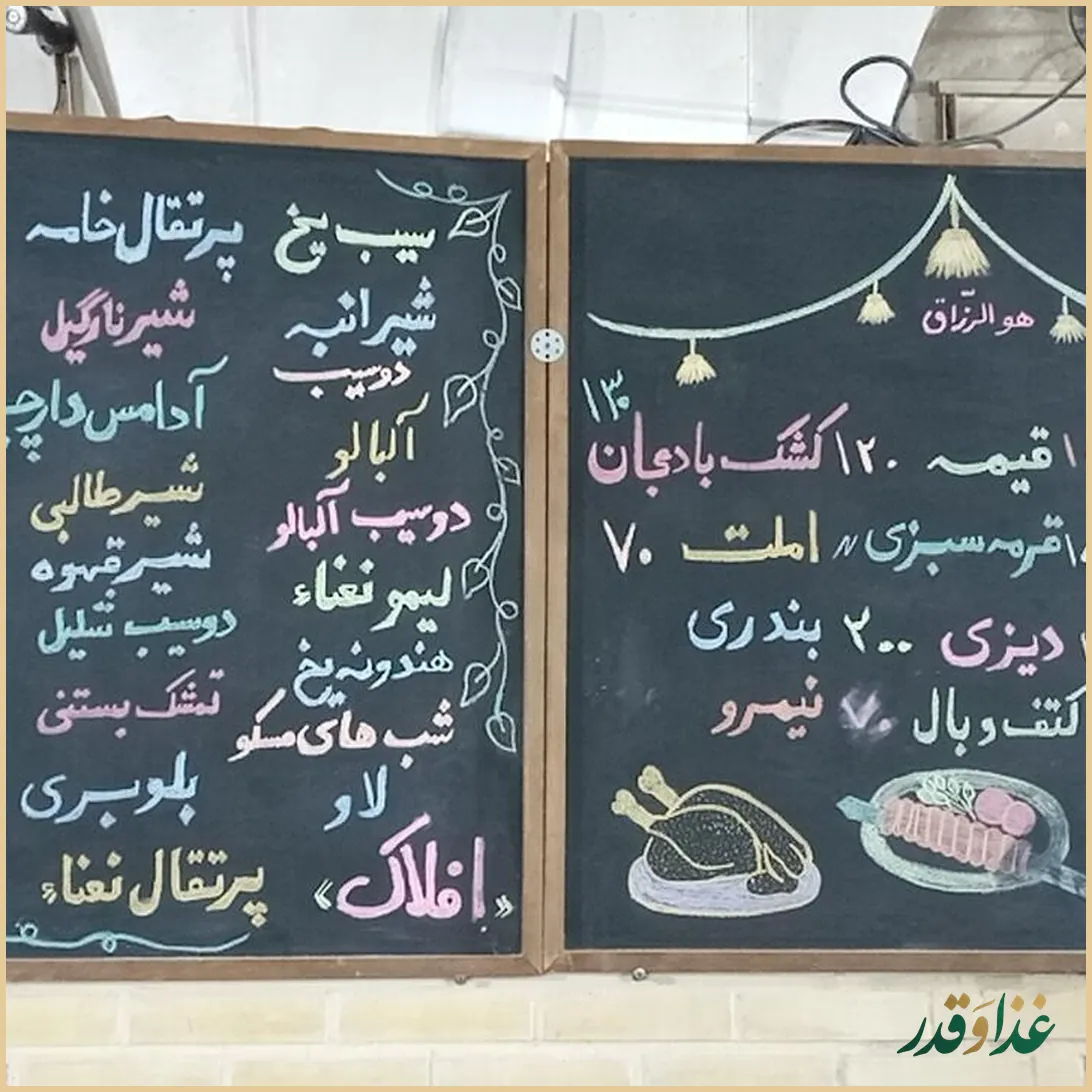 هو الرزّاق
قیمه ۱۲۰ کشک بادمجان ۱۳۰
قرمه سبزی املت ۷۰
دیزی ۲۰۰ بندری
کتف و بال ۷۰ نیمرو
سیب یخ
شیر انبه
دوسیب
آلبالو
دوسیب آلبالو
لیمو نعناء
هندونه یخ
شب های مسکو
لاو
«افلاک»
پرتقال خامه
شیر نارگیل
آدامس دارچ
شیر طالبی
شیر قهوه
دوسیب شلیل
تمشک بستنی
بلوبری
پرتقال نعناء
غذا وَ قدر